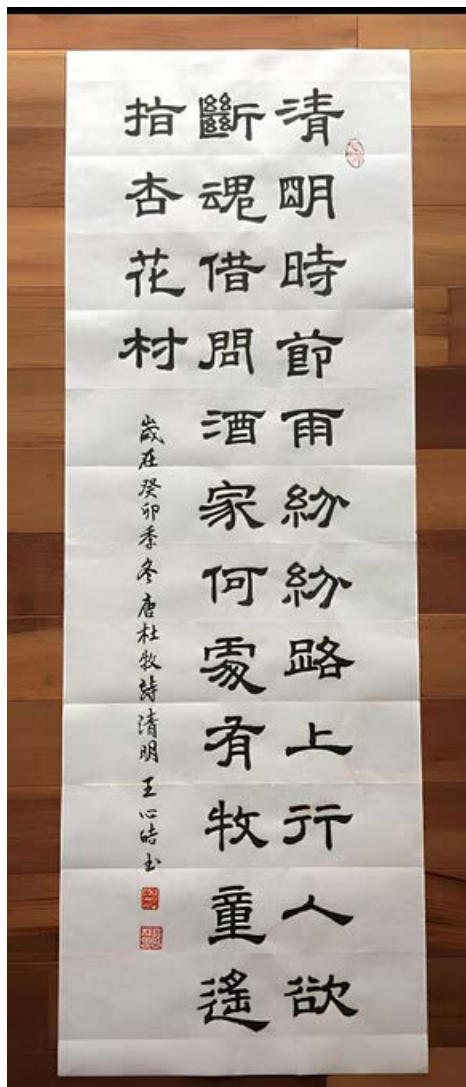 清明時節雨紛紛路上行人欲
斷魂借問酒家何處有牧童遙
指杏花村
歲在癸卯季冬唐杜牧詩清明 王心皓书